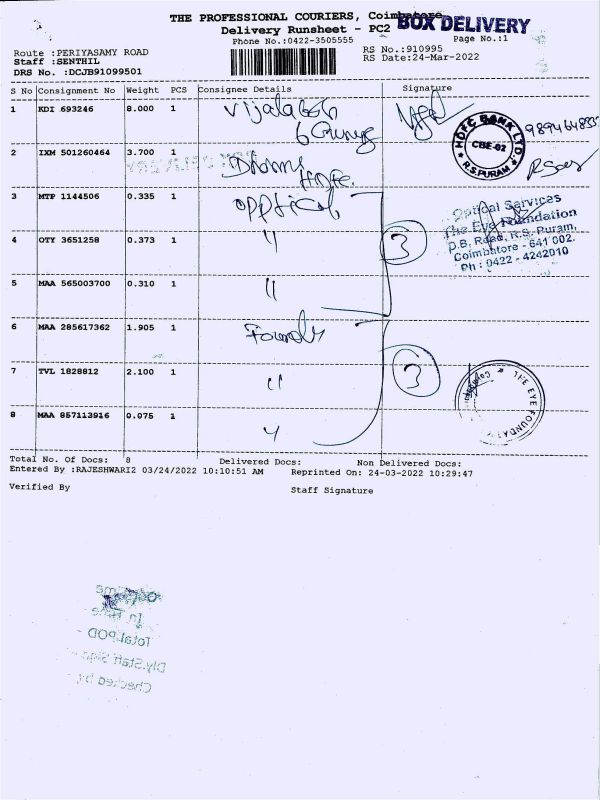 THE PROFESSIONAL COURIERS, Coimbatore
BOX DELIVERY
Delivery Runsheet - PC2
Phone No.:0422-3505555
Page No.:1
Route :PERIYASAMY ROAD
Staff :SENTHIL
DRS No. :DCJB91099501
RS No.:910995
RS Date:24-Mar-2022
S No Consignment No Weight PCS Consignee Details Signature
1 KDI 693246 8.000 1
HDFC BANK LTD
CBE-02
R.S.PURAM
2 IXM 501260464 3.700 1
3 MTP 1144506 0.335 1 opptical
Optical Services
The Eye Foundation
D.B. Road, R.S. Puram,
Coimbatore - 641 002.
Ph : 0422 - 4242010
4 OTY 3651258 0.373 1 " 3
5 MAA 565003700 0.310 1 "
6 MAA 285617362 1.905 1
7 TVL 1828812 2.100 1 " 3
THE EYE FOUNDATI
8 MAA 857113916 0.075 1 "
Total No. Of Docs: 8 Delivered Docs: Non Delivered Docs:
Entered By :RAJESHWARI2 03/24/2022 10:10:51 AM Reprinted On: 24-03-2022 10:29:47
Verified By Staff Signature
In Time
Total POD -
Dly.Staff Sign -
Checked by